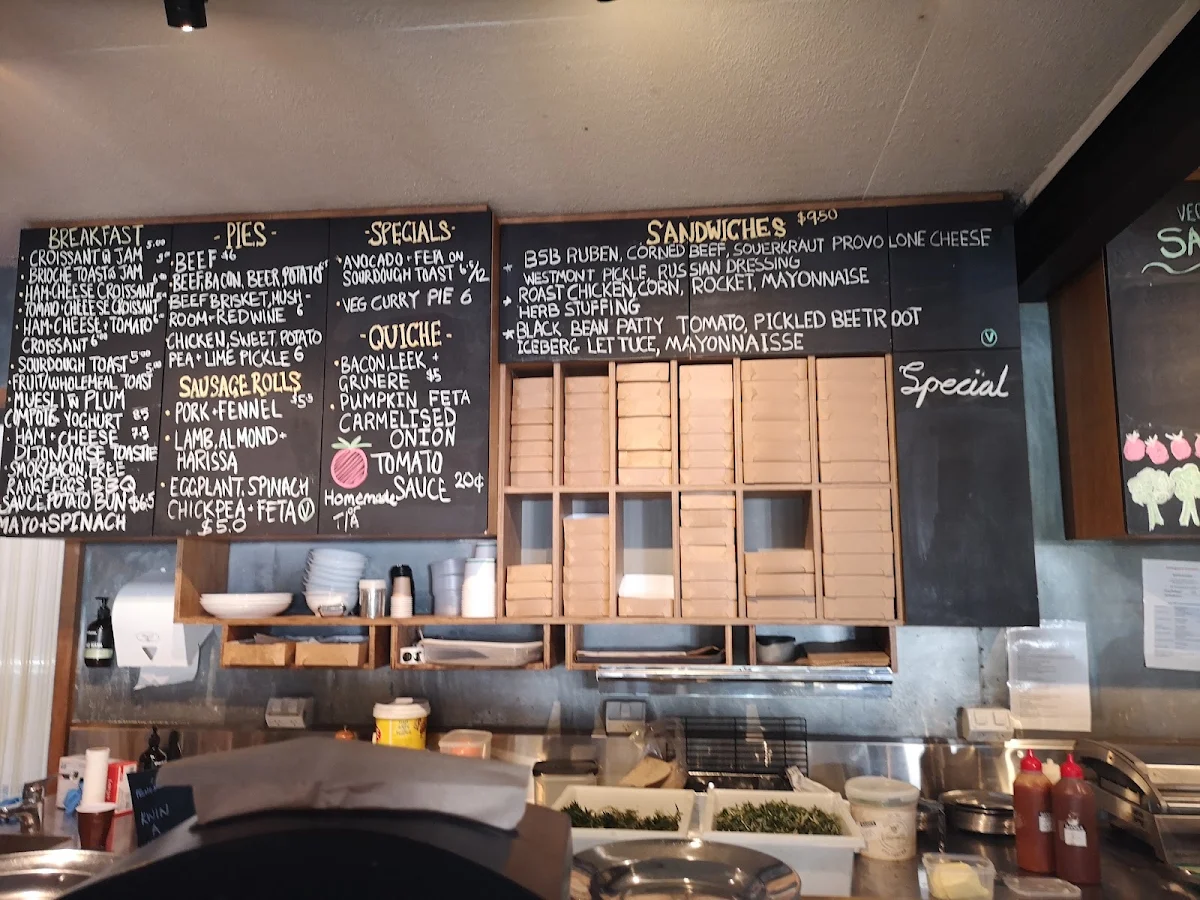 BREAKFAST
• CROISSANT W JAM 5.00
• BRIOCHE TOAST W JAM
• HAM+CHEESE CROISSANT
TOMATO+CHEESE CROISSANT
• HAM+CHEESE+TOMATO
CROISSANT 6
• SOURDOUGH TOAST 5.00
• FRUIT/WHOLEMEAL TOAST
• MUESLI W PLUM
COMPOTE YOGHURT 8.5
• HAM+CHEESE 7.5
DIJONNAISE TOASTIE
• SMOKY BACON, FREE
RANGE EGGS BBQ
SAUCE, POTATO BUN $6.5
MAYO+SPINACH
- PIES -
• BEEF $6
• BEEF, BACON, BEER, POTATO
BEEF BRISKET, MUSH-
ROOM+REDWINE 6
CHICKEN, SWEET POTATO
PEA+LIME PICKLE 6
SAUSAGE ROLLS
• PORK+FENNEL $5
• LAMB, ALMOND+
HARISSA
• EGGPLANT, SPINACH
CHICKPEA+FETA V
$5.0
- SPECIALS -
• AVOCADO+FETA ON
SOURDOUGH TOAST 6.5/12
• VEG CURRY PIE 6
- QUICHE -
• BACON, LEEK +
GRUYERE $5
• PUMPKIN FETA
CARMELISED
ONION
TOMATO
SAUCE 20¢
Homemade
SANDWICHES $9.50
* BSB RUBEN, CORNED BEEF, SOUERKRAUT PROVOLONE CHEESE
WESTMONT PICKLE, RUSSIAN DRESSING
* ROAST CHICKEN, CORN, ROCKET, MAYONNAISE
HERB STUFFING
* BLACK BEAN PATTY TOMATO, PICKLED BEETROOT
ICEBERG LETTUCE, MAYONNAISSE V
Special